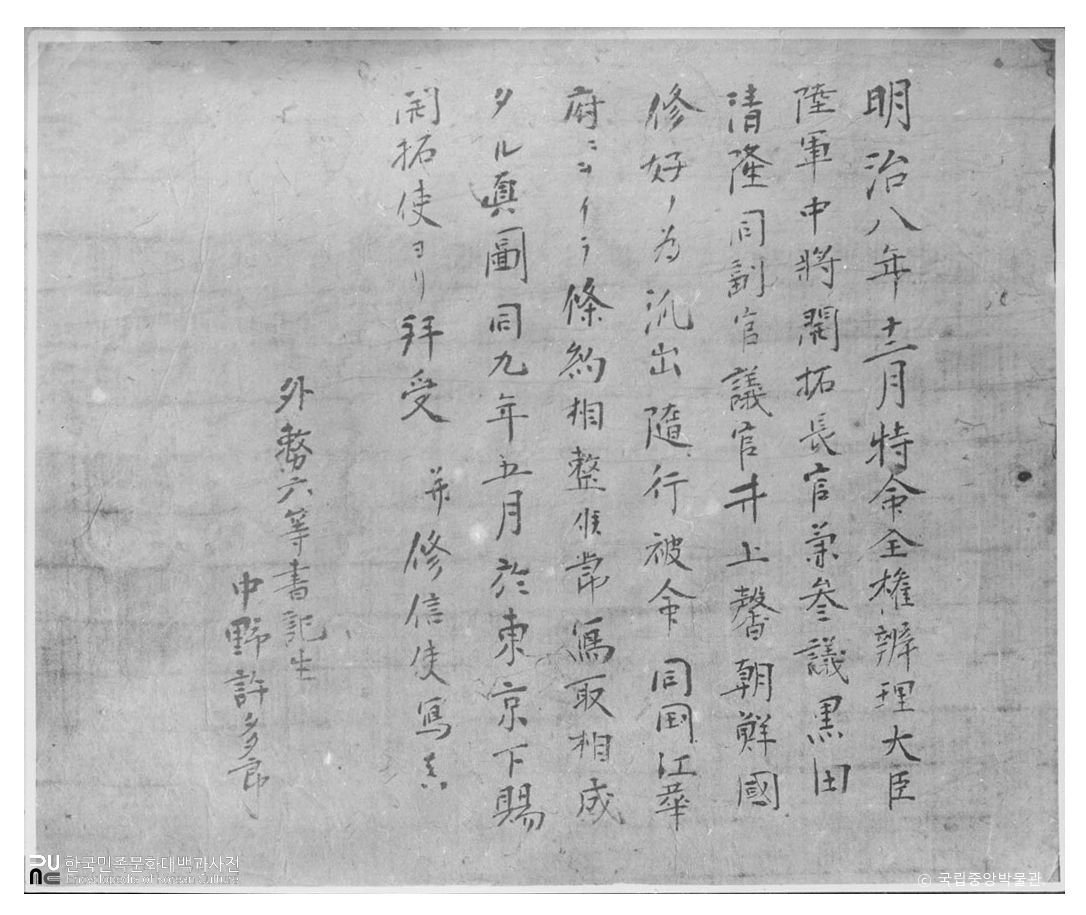 明治八年十二月特命全権辨理大臣
陸軍中將開拓長官兼参議黒田
清隆同副官議官井上馨朝鮮國
修好ノ為 出隨行被命同国江華
府ニヲイテ條約相整 常寫取相成
タル眞圖同九年五月於東京下賜
開拓使ヨリ拜受 并修信使寫真
外務六等書記生
中野許多郎
한국민족문화대백과사전
Encyclopedia of Korean Culture
© 국립중앙박물관